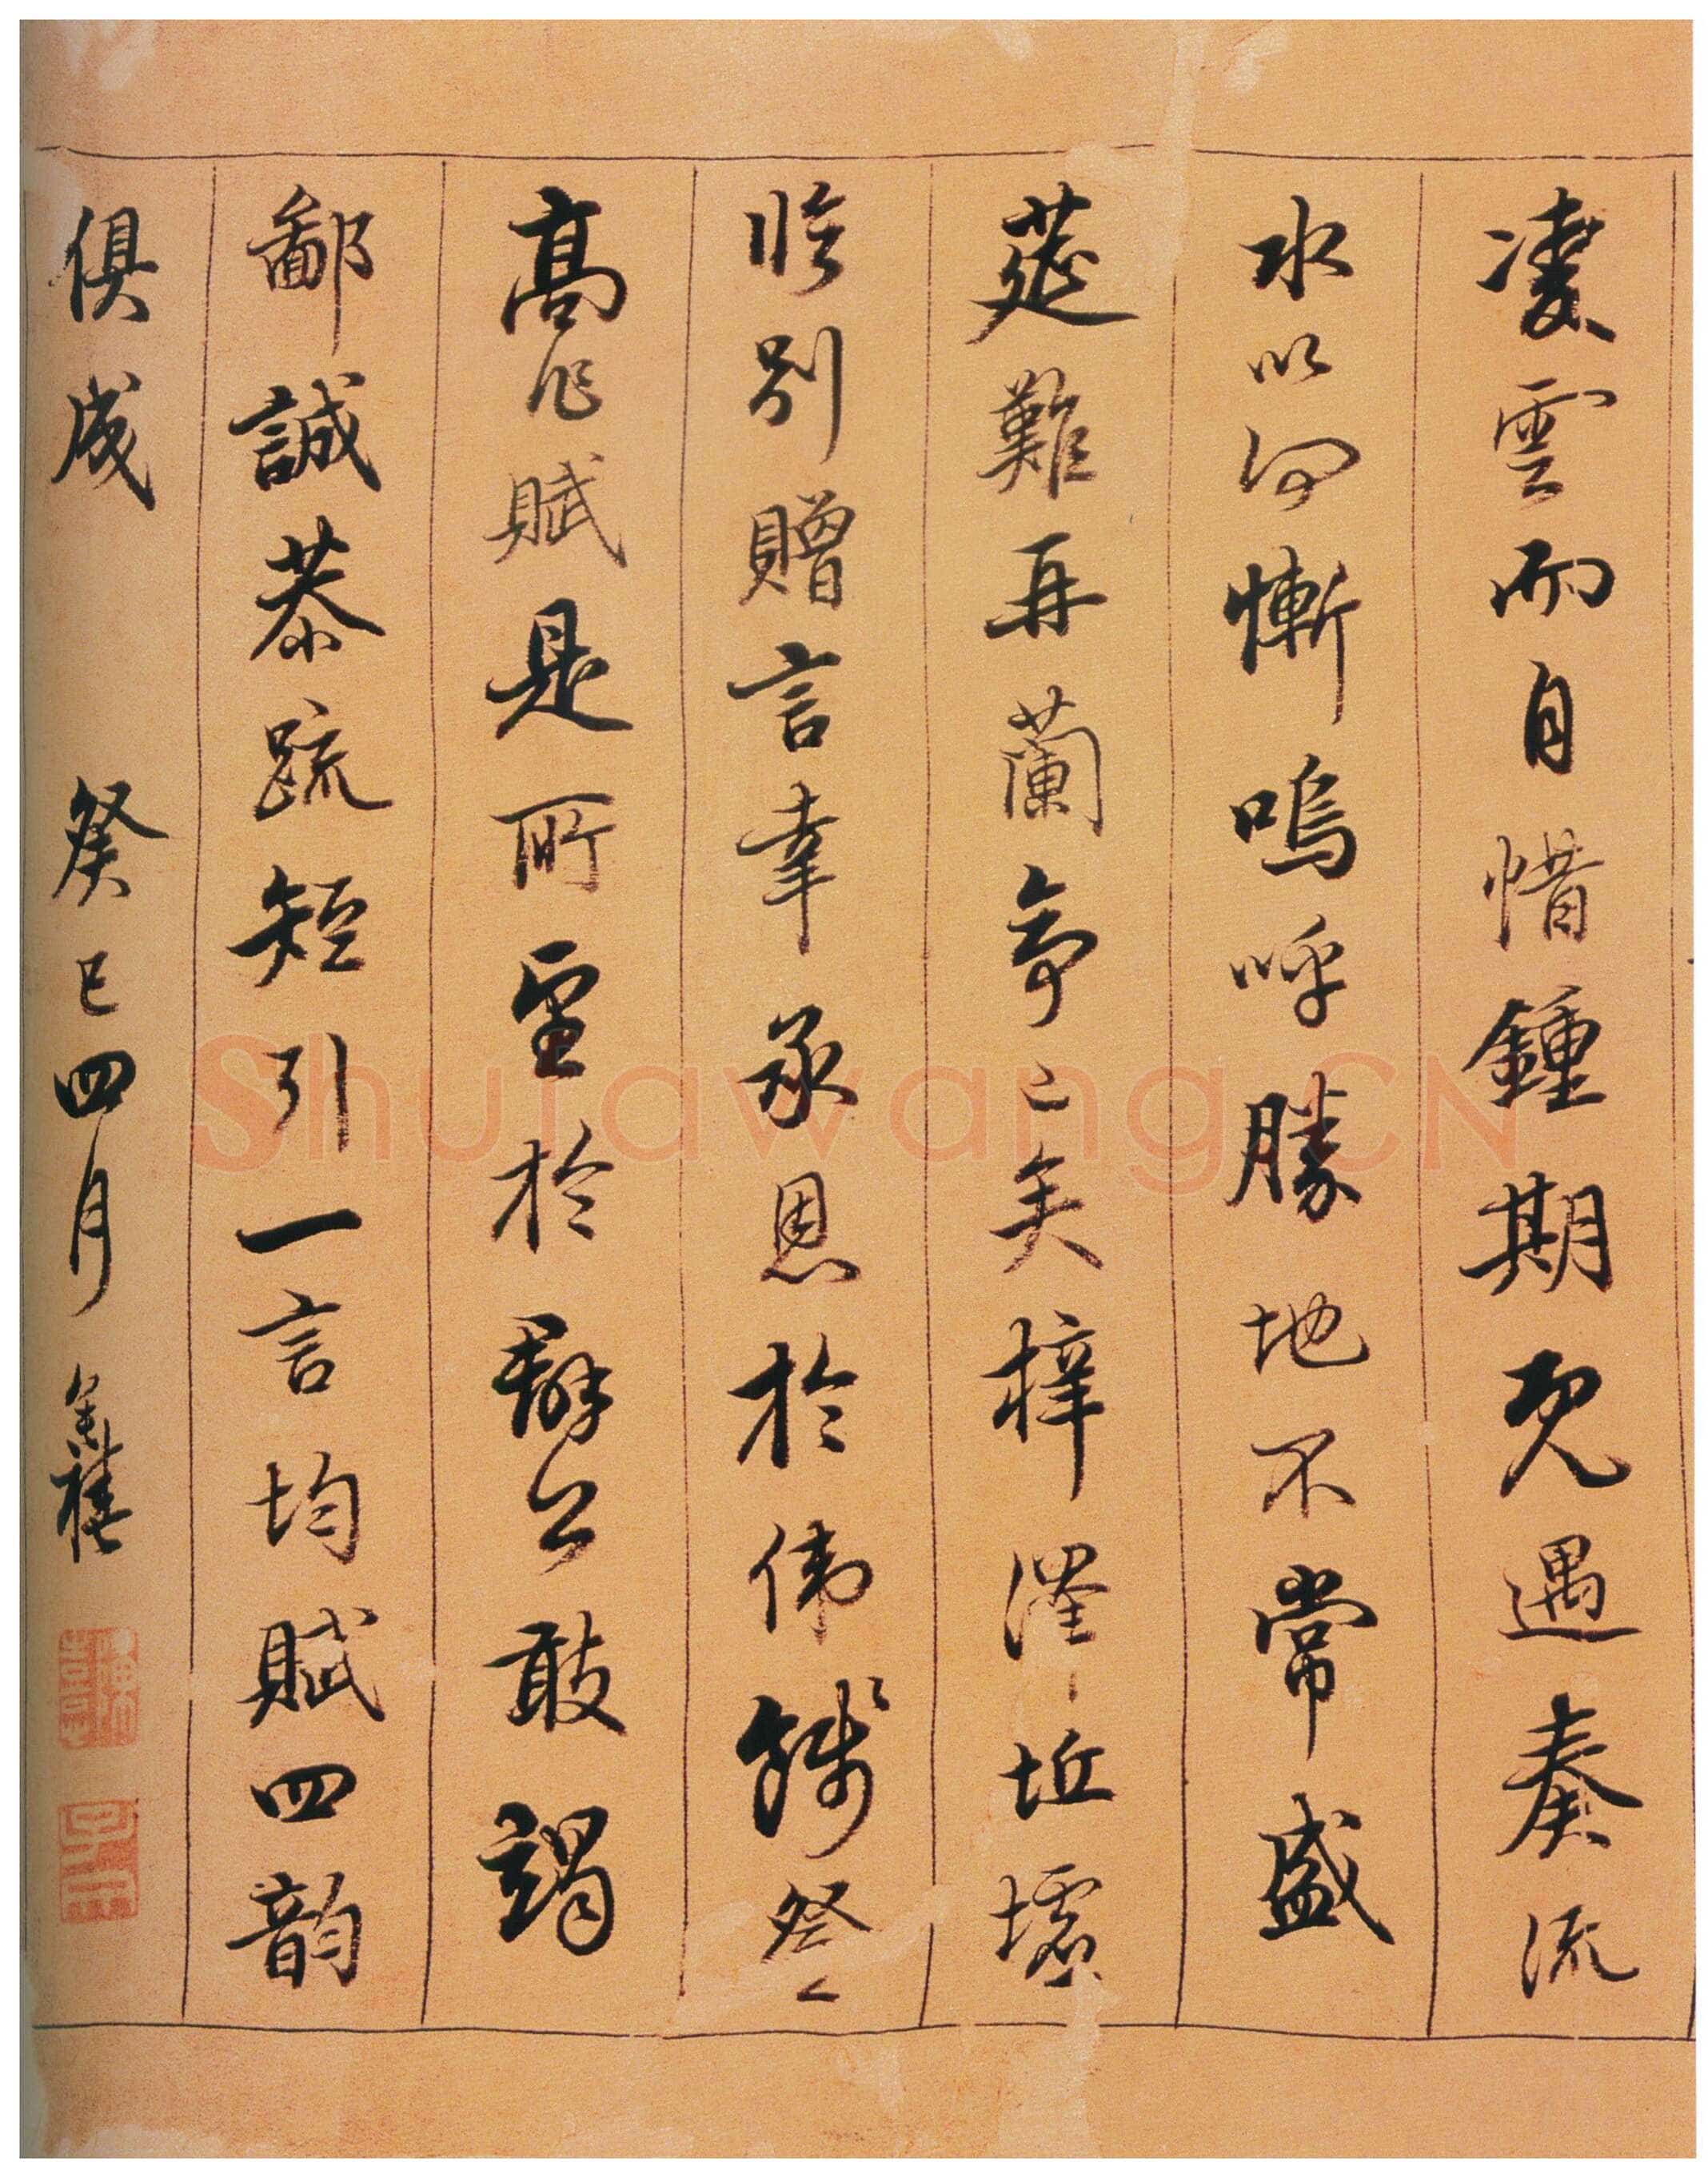 凌雲而自惜鍾期既遇奏流
水以何慚嗚呼勝地不常盛
莚難再蘭亭已矣梓澤坵墟
臨別贈言幸承恩於偉餞登
高作賦是所望於群公敢竭
鄙誠恭疏短引一言均賦四韻
俱成 癸巳四月 奕禧
Shufawang.CN